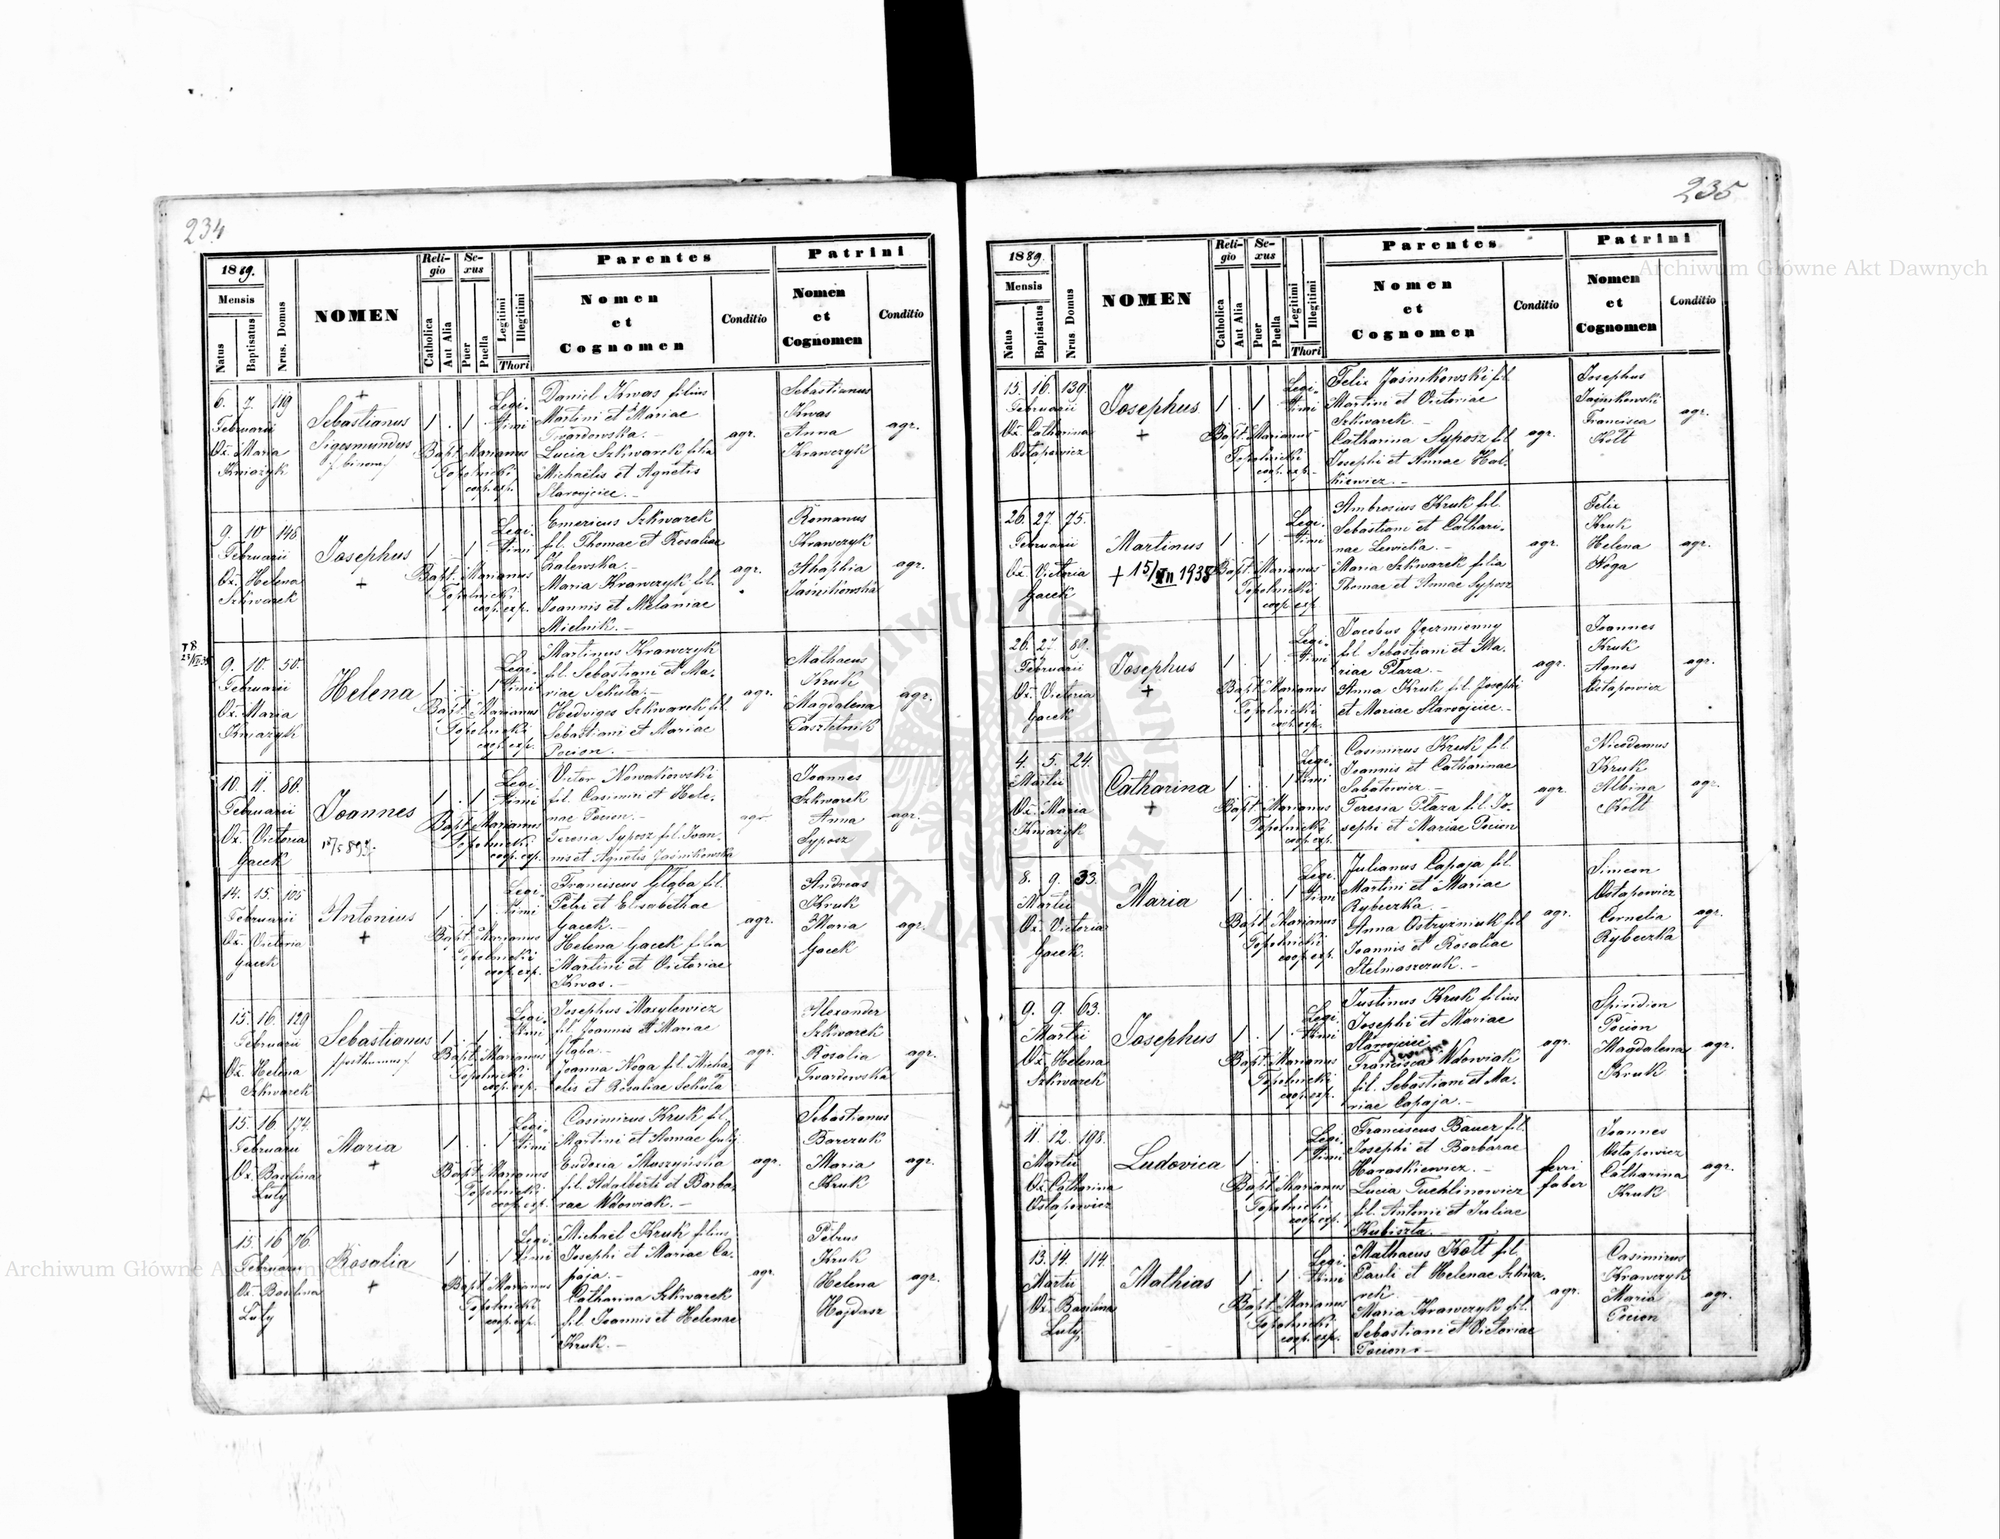 234
1889.
Mensis
Natus
Baptisatus
Nrus. Domus
NOMEN
Religio
Catholica
Aut Alia
Sexus
Puer
Puella
Legitimi
Illegitimi
Thori
Parentes
Nomen
et
Cognomen
Conditio
Patrini
Nomen
et
Cognomen
Conditio
6. 7. 119
Februarii
Ob. Maria
Kniazyk
+
Sebastianus
Sigesmundus
1 . 1 .
Legi-
timi
Bapt. Marianus
Topolnicki
coop. exp.
Daniel Kwas filius
Martini et Mariae
Twardowska. -
Lucia Szkwarek filia
Michaelis et Agnetis
Starojciec. -
agr.
Sebastianus
Kwas
Anna
Krawczyk
agr.
9. 10 148
Februarii
Ob. Helena
Szkwarek
Josephus
+
1 . 1 .
Legi-
timi
Bapt. Marianus
Topolnicki
coop. exp.
Emericus Szkwarek
fil. Thomae et Rosaliae
Zalewska. -
Maria Krawczyk fil.
Joannis et Melaniae
Mielnik. -
agr.
Romanus
Krawczyk
Ahaphia
Jasinkowska
agr.
9. 10. 50.
Februarii
Ob. Maria
Kniazyk
Helena
1 . . 1
Legi-
timi
Bapt. Marianus
Topolnicki
coop. exp.
Martinus Krawczyk
fil. Sebastiani et Ma-
riae Sekuta. -
Hedviges Szkwarek fil.
Sebastiani et Mariae
Pocion. -
agr.
Mathaeus
Kruk
Magdalena
Pasztetnik
agr.
10. 11. 86.
Februarii
Ob. Victoria
Gacek
Joannes
1 . 1 .
Legi-
timi
Bapt. Marianus
Topolnicki
coop. exp.
Victor Nowakowski
fil. Casimiri et Hele-
nae Pocion. -
Teresia Syposz fil. Joan-
nis et Agnetis Jasinkowska
agr.
Joannes
Szkwarek
Anna
Syposz
agr.
14. 15. 105
Februarii
Ob. Victoria
Gacek
Antonius
+
1 . 1 .
Legi-
timi
Bapt. Marianus
Topolnicki
coop. exp.
Franciscus Gląba fil.
Petri et Elisabethae
Gacek. -
Helena Gacek filia
Martini et Victoriae
Kwas. -
agr.
Andreas
Kruk
Maria
Gacek
agr.
15. 16. 129
Februarii
Ob. Helena
Szkwarek
Sebastianus
posthumus
1 . 1 .
Legi-
timi
Bapt. Marianus
Topolnicki
coop. exp.
Josephus Masylewicz
fil. Joannis et Mariae
Gląba. -
Joanna Noga fil. Micha-
elis et Rosaliae Sekuta
agr.
Alexander
Szkwarek
Rosalia
Twardowska
agr.
15. 16. 174
Februarii
Ob. Basilina
Luty
Maria
+
1 . . 1
Legi-
timi
Bapt. Marianus
Topolnicki
coop. exp.
Casimirus Kruk fil.
Martini et Annae Luty
Eudoxia Muszyńska
fil. Adalberti et Barba-
rae Wdowiak. -
agr.
Sebastianus
Barczuk
Maria
Kruk
agr.
15. 16 76
Februarii
Ob. Basilina
Luty
Rosalia
+
1 . . 1
Legi-
timi
Bapt. Marianus
Topolnicki
coop. exp.
Michael Kruk filius
Josephi et Mariae Ca-
paja. -
Catharina Szkwarek
fil. Joannis et Helenae
Kruk. -
agr.
Petrus
Kruk
Helena
Hojdasz
agr.
235
1889.
Mensis
Natus
Baptisatus
Nrus Domus
NOMEN
Religio
Catholica
Aut Alia
Sexus
Puer
Puella
Legitimi
Illegitimi
Thori
Parentes
Nomen
et
Cognomen
Conditio
Patrini
Nomen
et
Cognomen
Conditio
15. 16. 139
Februarii
Ob. Catharina
Ostapowicz
Josephus
+
1 . 1 .
Legi-
timi
Bapt. Marianus
Topolnicki
coop. exp.
Felix Jasinkowski fil.
Martini et Victoriae
Szkwarek. -
Catharina Syposz fil.
Josephi et Annae Hal-
kiewicz. -
agr.
Josephus
Jasinkowski
Francisca
Kott
agr.
26. 27. 75.
Februarii
Ob. Victoria
Gacek
Martinus
1 . 1 .
Legi-
timi
Bapt. Marianus
Topolnicki
coop. exp.
Ambrosius Kruk fil.
Sebastiani et Cathari-
nae Lewicka. -
Maria Szkwarek filia
Thomae et Annae Syposz
agr.
Felix
Kruk
Helena
Noga
agr.
26. 27. 89.
Februarii
Ob. Victoria
Gacek
Josephus
+
1 . 1 .
Legi-
timi
Bapt. Marianus
Topolnicki
coop. exp.
Jacobus Jęczmienny
fil. Sebastiani et Ma-
riae Plaza. -
Anna Kruk fil. Josephi
et Mariae Starojciec. -
agr.
Joannes
Kruk
Agnes
Ostapowicz
agr.
4. 5. 24.
Martii
Ob. Maria
Kniazyk
Catharina
+
1 . . 1
Legi-
timi
Bapt. Marianus
Topolnicki
coop. exp.
Casimirus Kruk fil.
Joannis et Catharinae
Sabatowicz. -
Teresia Plaza fil. Jo-
sephi et Mariae Pocion
agr.
Nicodemus
Kruk
Albina
Kott
agr.
8. 9. 33.
Martii
Ob. Victoria
Gacek.
Maria
1 . . 1
Legi-
timi
Bapt. Marianus
Topolnicki
coop. exp.
Julianus Capaja fil.
Martini et Mariae
Rybeczka. -
Anna Ostryzniuk fil.
Joannis et Rosaliae
Stelmaszczuk. -
agr.
Simeon
Ostapowicz
Cornelia
Rybeczka
agr.
9. 9. 63.
Martii
Ob. Helena
Szkwarek
Josephus
1 . 1 .
Legi-
timi
Bapt. Marianus
Topolnicki
coop. exp.
Justinus Kruk filius
Josephi et Mariae
Starojciec
Francisca Wdowiak
fil. Sebastiani et Ma-
riae Capaja. -
agr.
Spiridion
Pocion
Magdalena
Kruk
agr.
11. 12. 198.
Martii
Ob. Catharina
Ostapowicz
Ludovica
1 . . 1
Legi-
timi
Bapt. Marianus
Topolnicki
coop. exp.
Franciscus Bauer fil.
Josephi et Barbarae
Haraskiewicz. -
Lucia Tuchlinowicz
fil. Antonii et Juliae
Kubiszta. -
ferri
faber
Joannes
Ostapowicz
Catharina
Kruk
agr.
13. 14. 114.
Martii
Ob. Basilina
Luty
Mathias
1 . 1 .
Legi-
timi
Bapt. Marianus
Topolnicki
coop. exp.
Mathaeus Kott fil.
Pauli et Helenae Szkwa-
rek.
Maria Krawczyk fil.
Sebastiani et Victoriae
Pocion. -
agr.
Casimirus
Krawczyk
Maria
Pocion
agr.
Archiwum Główne Akt Dawnych
Archiwum Główne Akt Dawnych
ARCHIWUM GŁÓWNE AKT DAWNYCH